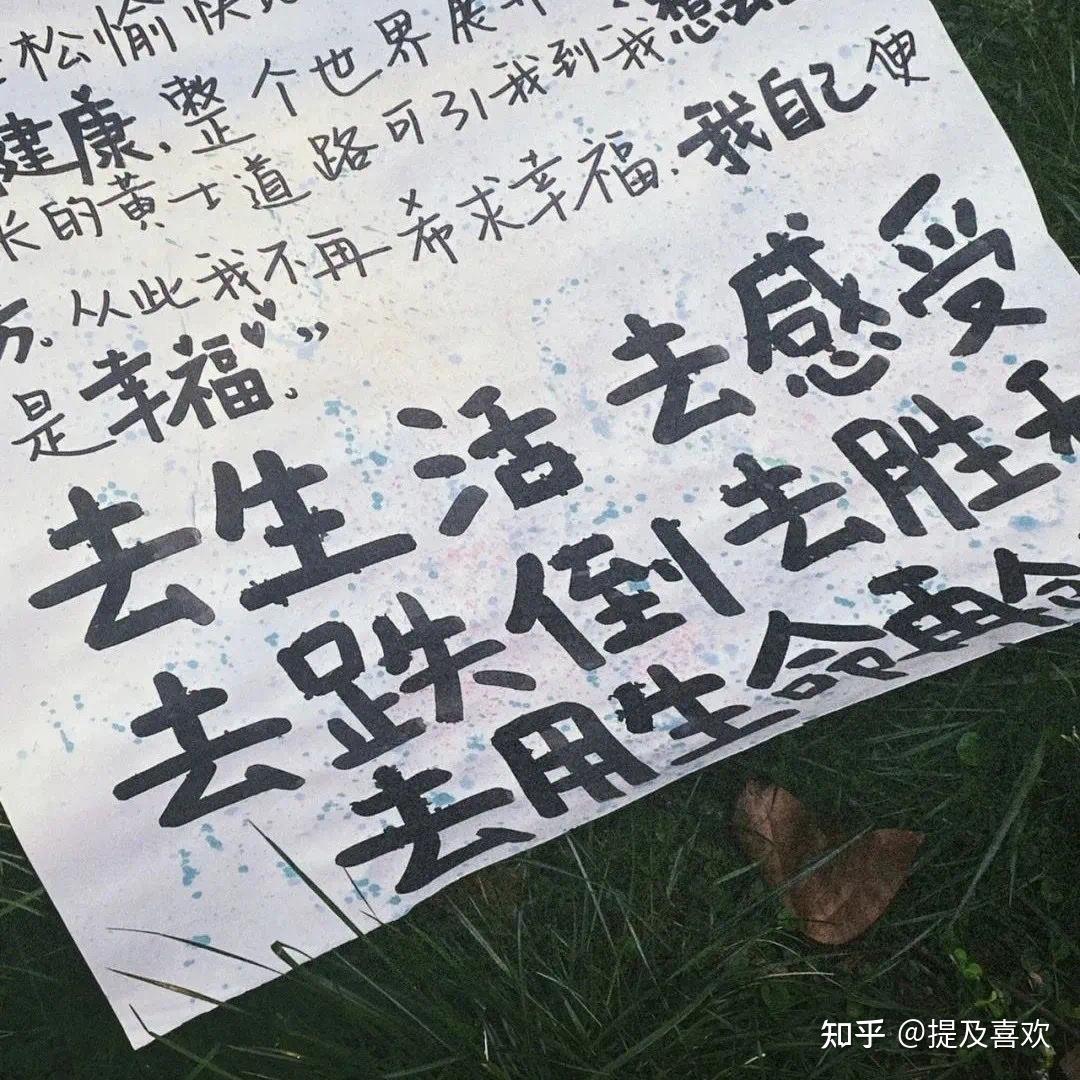 松愉快
健康,整个世界展
长的黄土道路可引我到我想去
方。从此我不再希求幸福,我自己便
是幸福。”
去生活 去感受
去跌倒 去胜
去用生命再
知乎 @提及喜欢